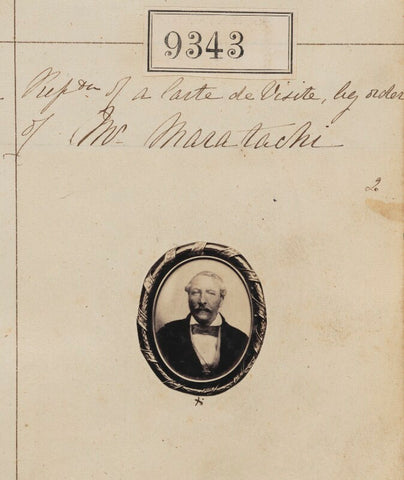 9343
Repdn of a Carte de Visite, by order
of Mr Maratachi
2